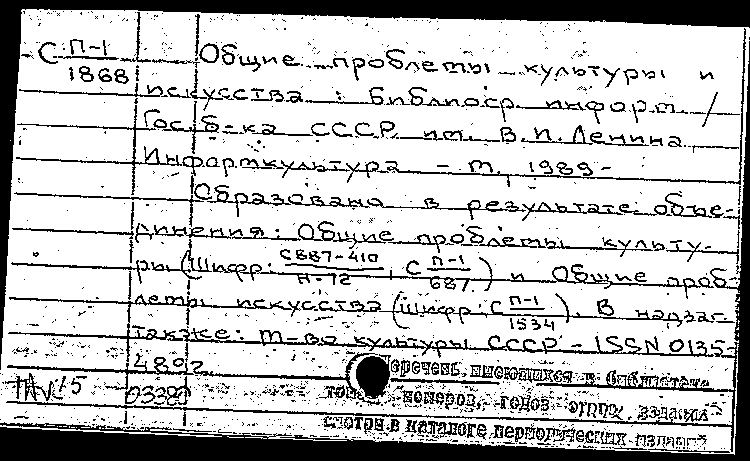 С П-1/1868 Общие проблемы культуры и
искусства : Библиогр. информ. /
Гос. б-ка СССР им. В.И. Ленина,
Информкультура. - М., 1989-
Образовано в результате объе-
динения: Общие проблемы культу-
ры (Шифр: С887-410/Н-72, С П-1/687) и Общие проб-
лемы искусства (Шифр: С П-1/1534). В надзаг.
также: М-во культуры СССР - ISSN 0135-
4892
03389
Перечень имеющихся в библиотеке
томов, номеров, годов этих изданий
смотри в каталоге периодических изданий